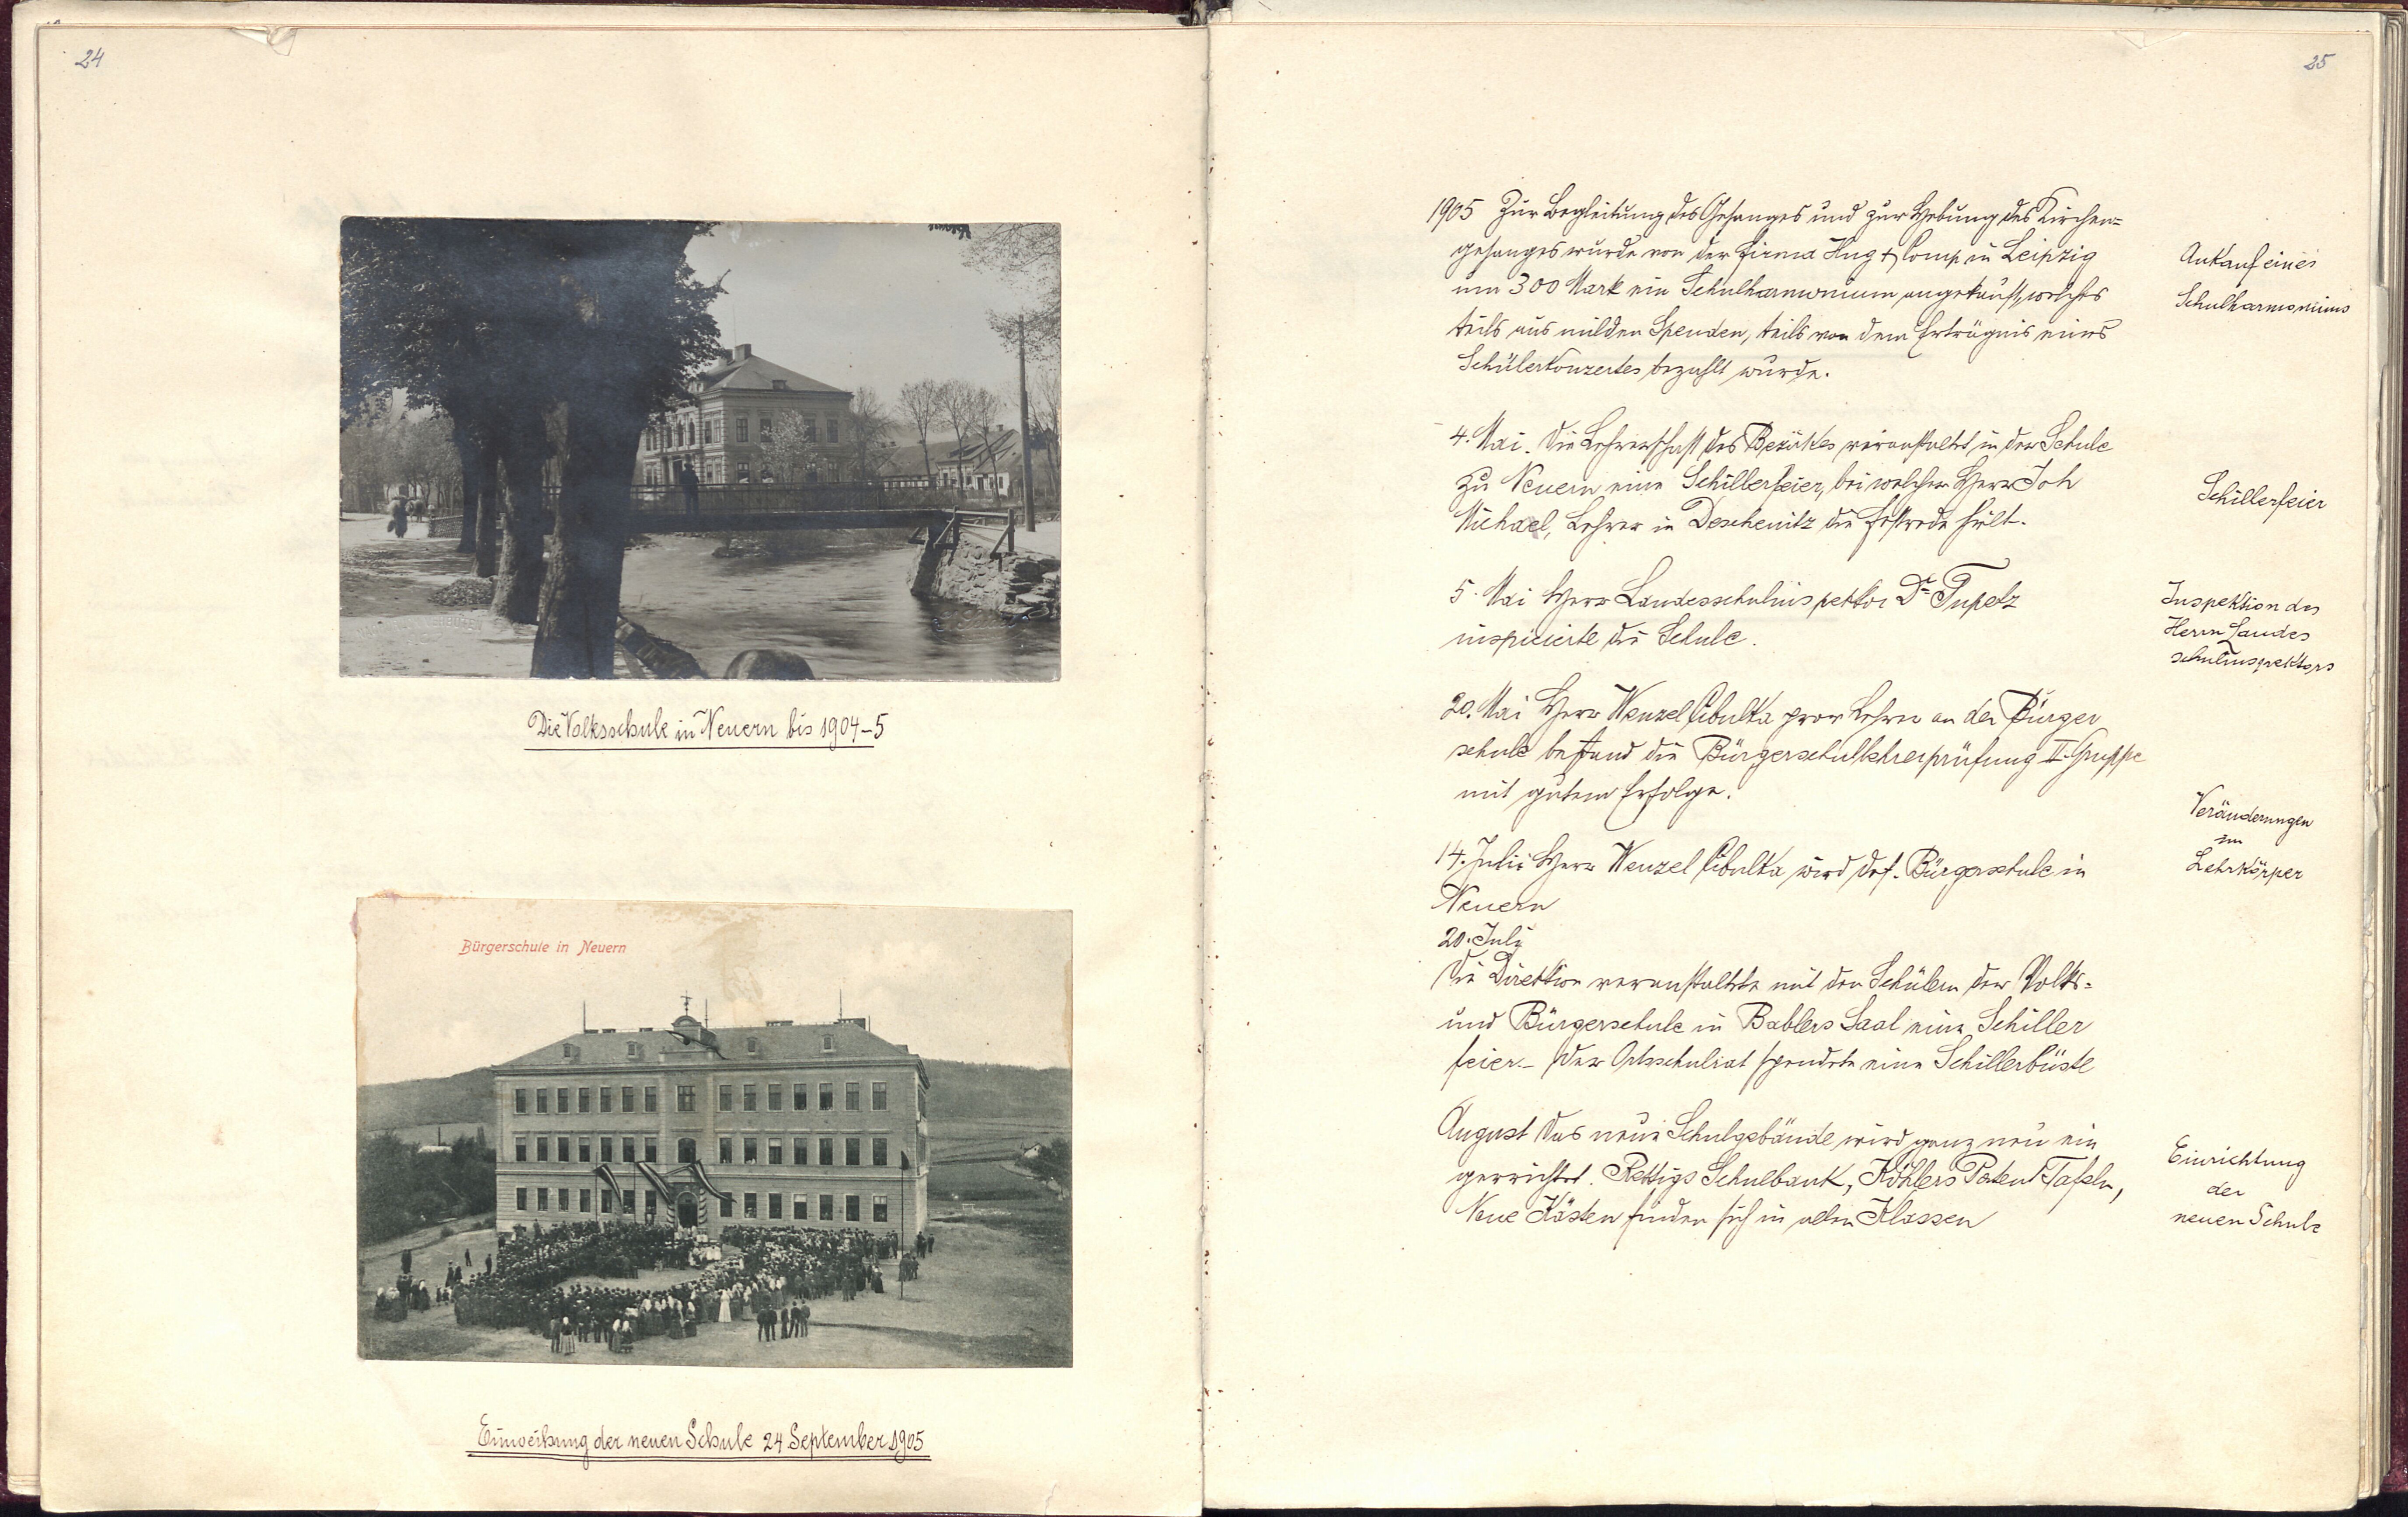 24
Die Volksschule in Neuern bis 1904-5
Bürgerschule in Neuern
Einweihung der neuen Schule 24 September 1905
25
1905 Zur Begleitung des Gesanges und zur Hebung des Kirchen=
gesanges wurde von der Firma Hug + Comp in Leipzig
um 300 Mark ein Schulharmonium angekauft, welches
teils aus milden Spenden, teils von dem Erträgnis eines
Schülerkonzertes bezahlt wurde.
Ankauf eines
Schulharmoniums
4. Mai. Die Lehrerschaft des Bezirkes veranstaltet in der Schule
zu Neuern eine Schillerfeier, bei welcher Herr Joh
Michael, Lehrer in Deschenitz die Festrede hielt.
Schillerfeier
5. Mai Herr Landesschulinspektor Dr Tupetz
inspicierte die Schule.
Inspektion des
Herrn Landes
schulinspektors
20. Mai Herr Wenzel Cibulka prov Lehrer an der Bürger
schule bestand die Bürgerschullehrerprüfung II. Gruppe
mit gutem Erfolge.
14. Juli Herr Wenzel Cibulka wird def. Bürgerschule in
Neuern
Veränderungen
im
Lehrkörper
20. Juli
Die Direktion veranstaltete mit den Schülern der Volks=
und Bürgerschule in Bablers Saal eine Schiller
feier.- Der Ortsschulrat spendete eine Schillerbüste
August Das neue Schulgebäude wird ganz neu ein
gerichtet. Rettigs Schulbank, Köhlers Patent Tafeln,
Neue Kästen finden sich in allen Klassen
Einrichtung
der
neuen Schule